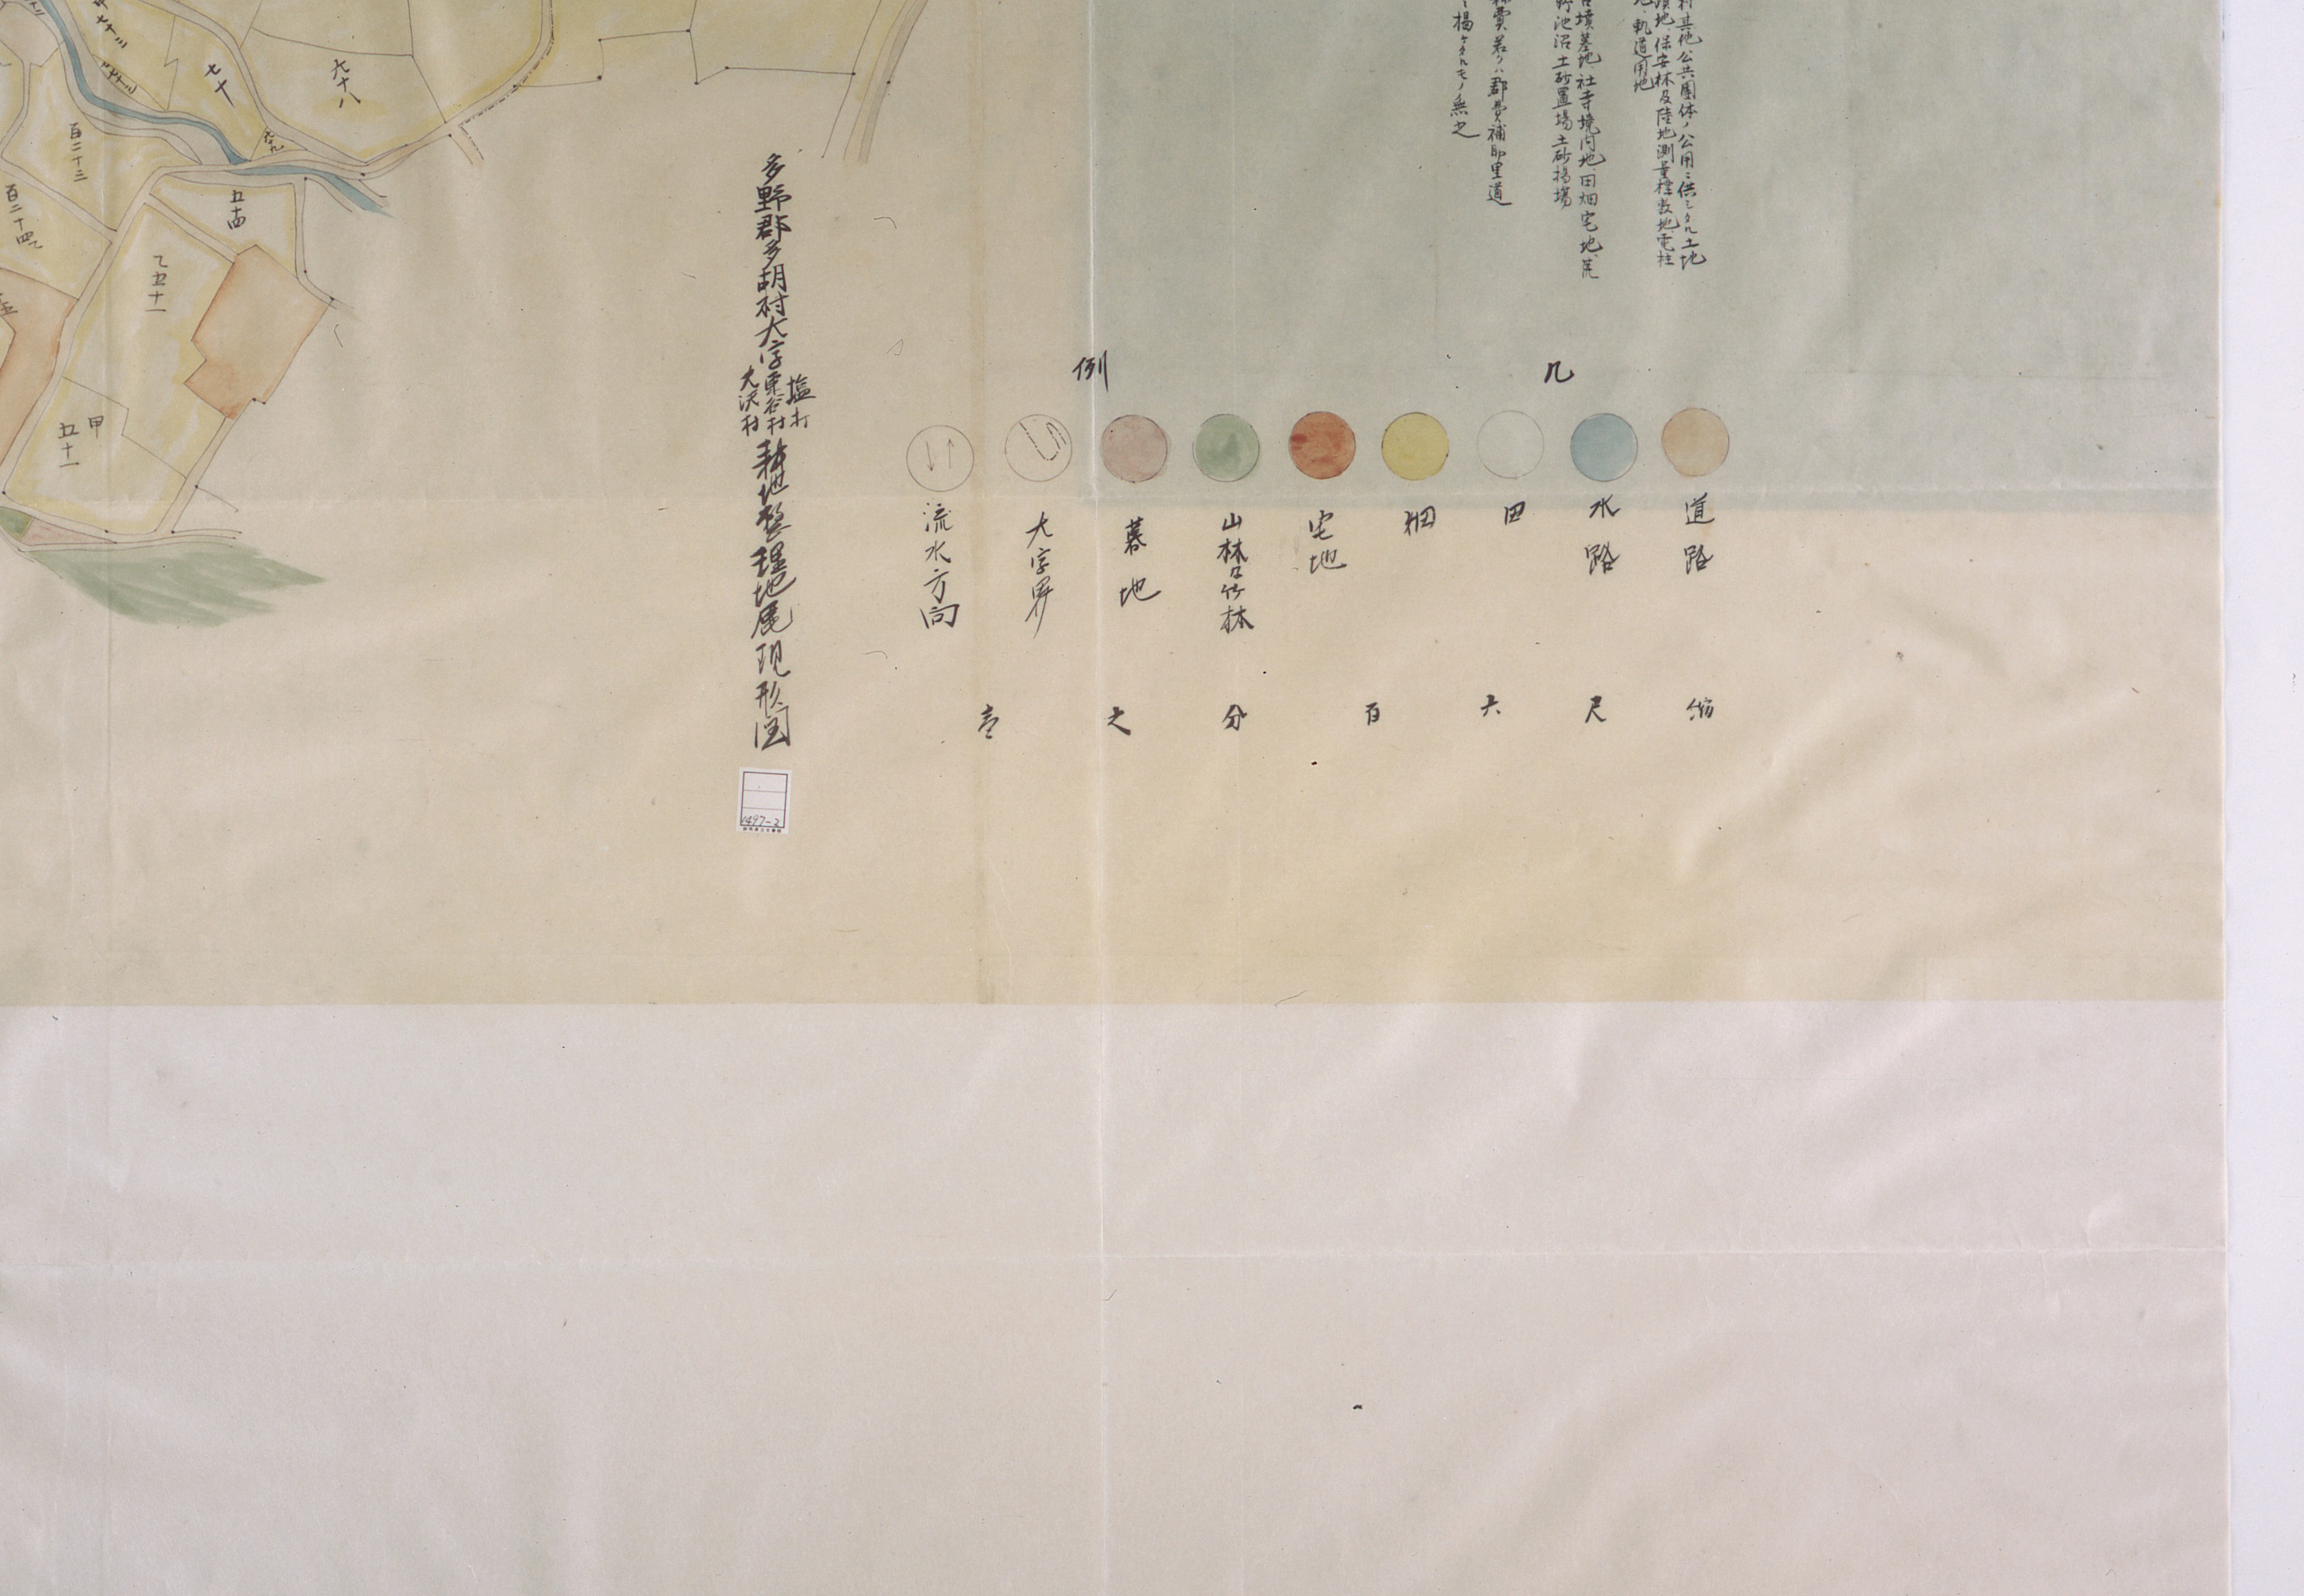 村其他公共團体ノ公用ニ供シタル土地
墳地、保安林及陸地測量標敷地、電柱
地、軌道用地
古墳墓地、社寺境内地、田畑宅地荒
野池沼土砂置場土砂揚場
費若クハ郡費補助里道
揚ケタルモノ無之
凡例
道路
水路
田
畑
宅地
山林及竹林
墓地
大字界
流水方向
縮尺六百分之壱
多野郡多胡村大字
塩村
東谷村
大沢村
耕地整理地展現形図
1497-2
七十三
七十
九十八
百二十三
百二十四乙
五十四
乙五十一
甲五十一